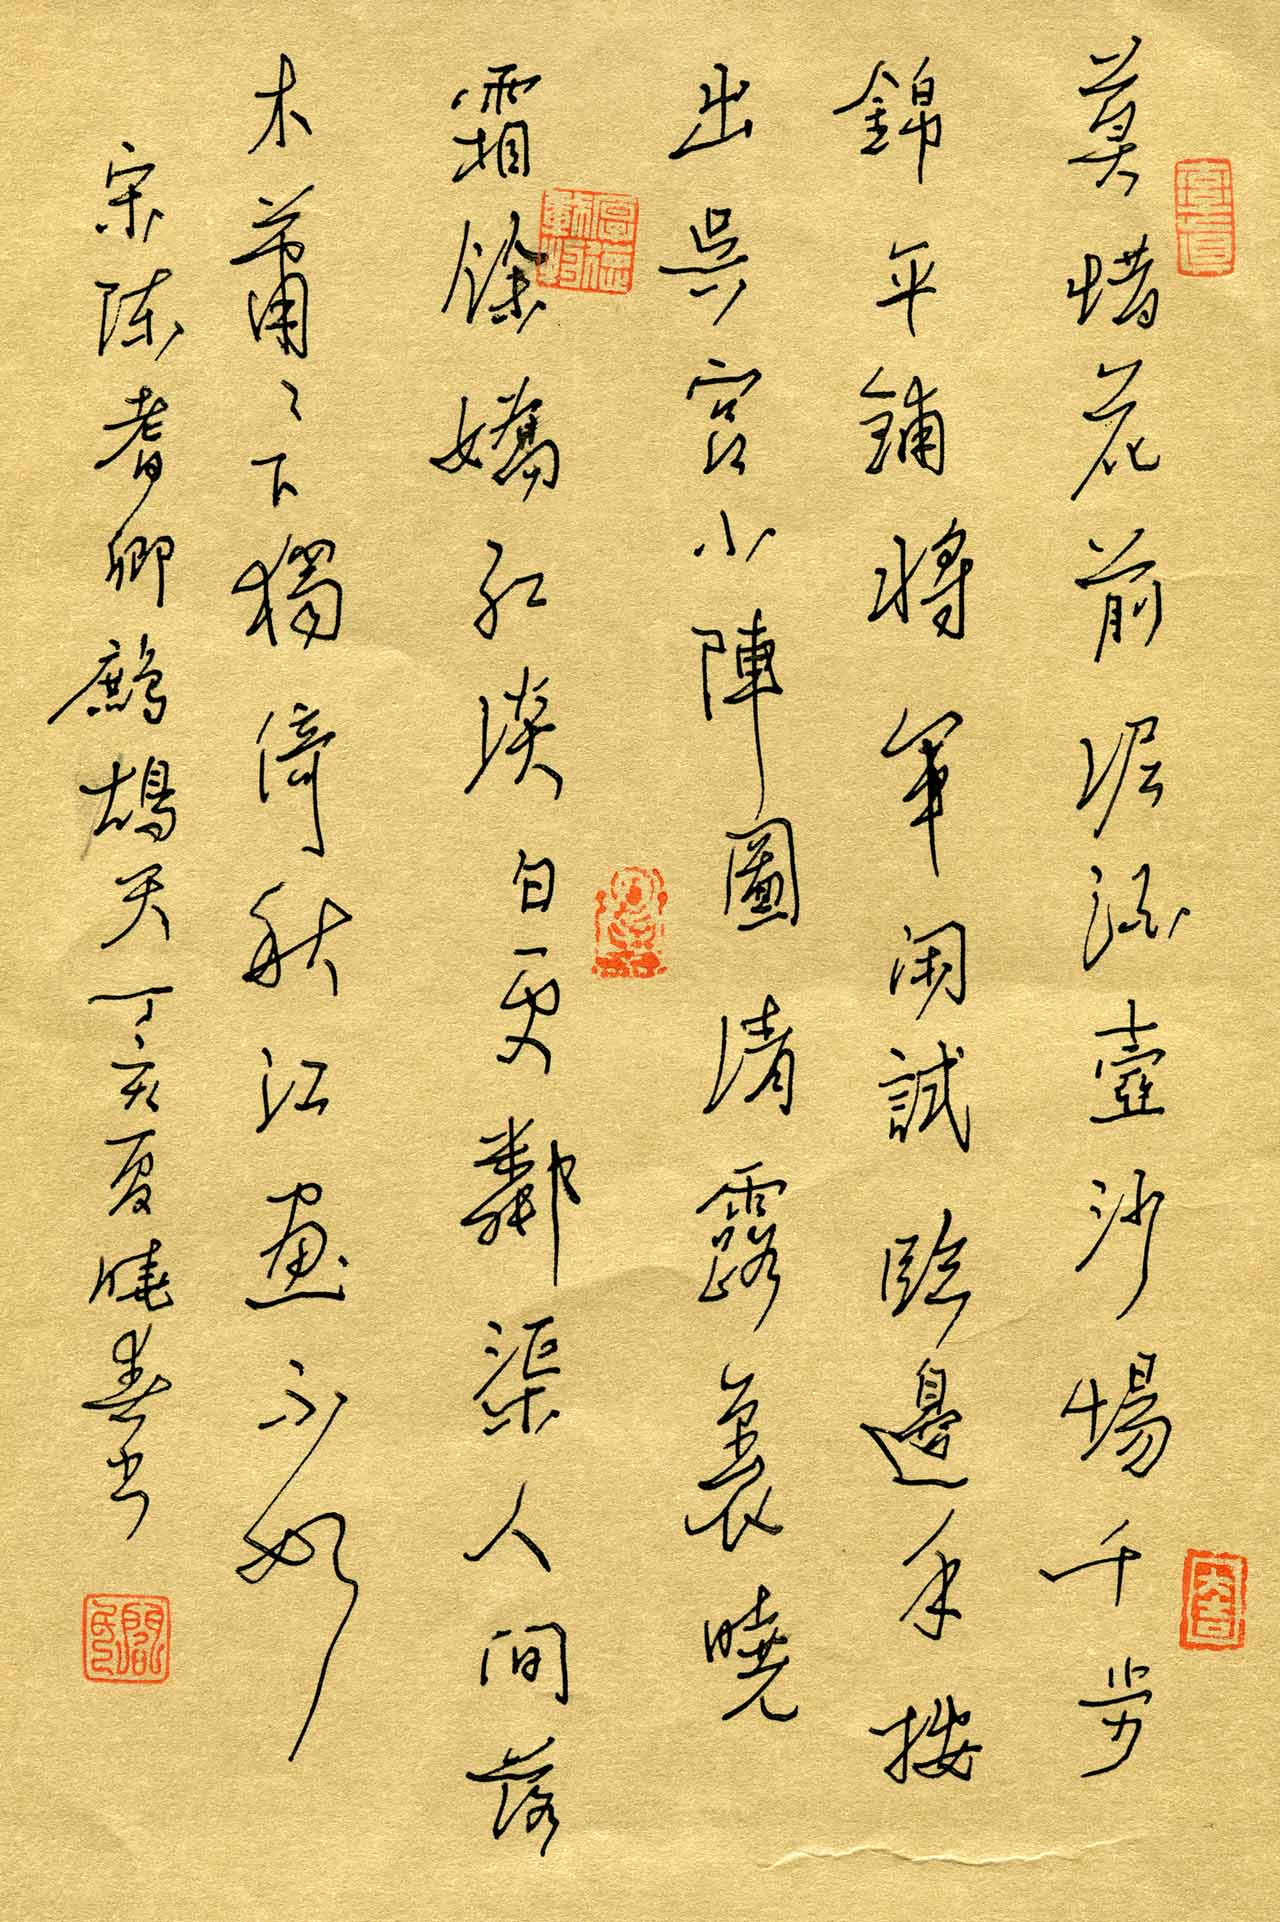 莫惜花前泥酒壺沙場千步
錦平鋪將軍閑試臨邊手按
出吳宮小陣圖清露裛曉
霜餘嬌紅淡白更鄰渠人間落
木蕭〻下獨倚秋江畫不如
宋陈耆卿鷓鴣天丁亥夏曉春书
大吉